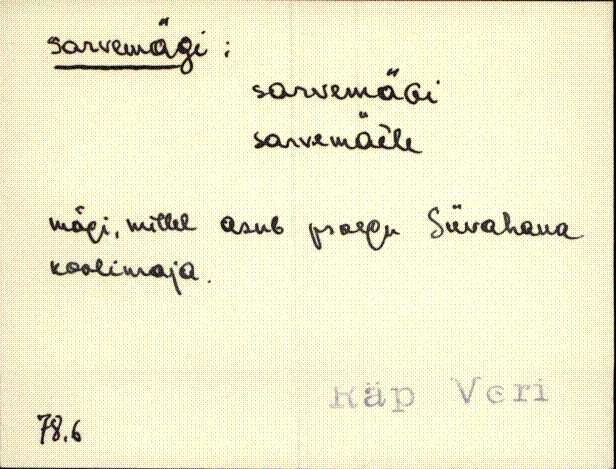 sarvemägi:
sarvemäGi
sarvemäele
mägi, millel asub praegu Süvahana
koolimaja.
Räp Veri
78.6